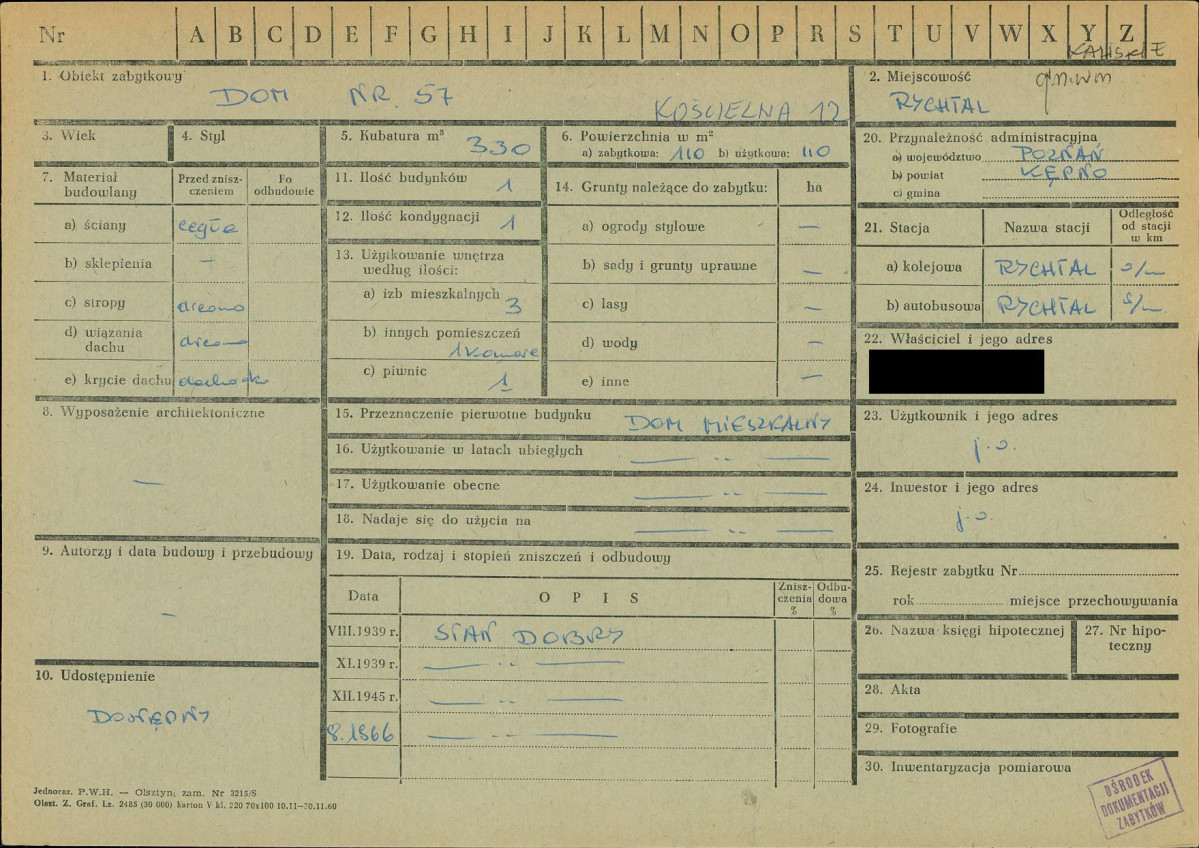 Nr A B C D E F G H I J K L M N O P R S T U V W X Y Z
KALISKIE
1. Obiekt zabytkowy
DOM NR. 57
KOŚCIELNA 12
2. Miejscowość
gm. w m
RYCHTAL
3. Wiek
4. Styl
5. Kubatura m³
330
6. Powierzchnia w m²
a) zabytkowa: 110 b) użytkowa: 110
20. Przynależność administracyjna
a) województwo POZNAŃ
b) powiat KĘPNO
c) gmina
7. Materiał budowlany
Przed zniszczeniem
Po odbudowie
a) ściany cegła
b) sklepienia —
c) stropy drewno
d) wiązania dachu drewno
e) krycie dachu dachówka
11. Ilość budynków 1
12. Ilość kondygnacji 1
13. Użytkowanie wnętrza
według ilości:
a) izb mieszkalnych 3
b) innych pomieszczeń
1 komora
c) piwnic 1
14. Grunty należące do zabytku: ha
a) ogrody stylowe —
b) sady i grunty uprawne —
c) lasy —
d) wody —
e) inne —
21. Stacja
Nazwa stacji
Odległość
od stacji
w km
a) kolejowa RYCHTAL
b) autobusowa RYCHTAL
22. Właściciel i jego adres
8. Wyposażenie architektoniczne
—
15. Przeznaczenie pierwotne budynku DOM MIESZKALNY
16. Użytkowanie w latach ubiegłych — .. —
17. Użytkowanie obecne — .. —
18. Nadaje się do użycia na — .. —
23. Użytkownik i jego adres
j.w.
24. Inwestor i jego adres
j.w.
9. Autorzy i data budowy i przebudowy
—
19. Data, rodzaj i stopień zniszczeń i odbudowy
Data
OPIS
Zniszczenia %
Odbudowa %
VIII.1939 r. STAN DOBRY
XI.1939 r. — .. —
XII.1945 r. — .. —
8.1966 — .. —
25. Rejestr zabytku Nr
rok miejsce przechowywania
26. Nazwa księgi hipotecznej
27. Nr hipoteczny
10. Udostępnienie
DOSTĘPNY
28. Akta
29. Fotografie
30. Inwentaryzacja pomiarowa
OŚRODEK
DOKUMENTACJI
ZABYTKÓW
Jednoraz. P.W.H. — Olsztyn; zam. Nr 3215/S
Olszt. Z. Graf. Lz. 2485 (30 000) karton V kl. 220 70x100 10.11—30.11.60